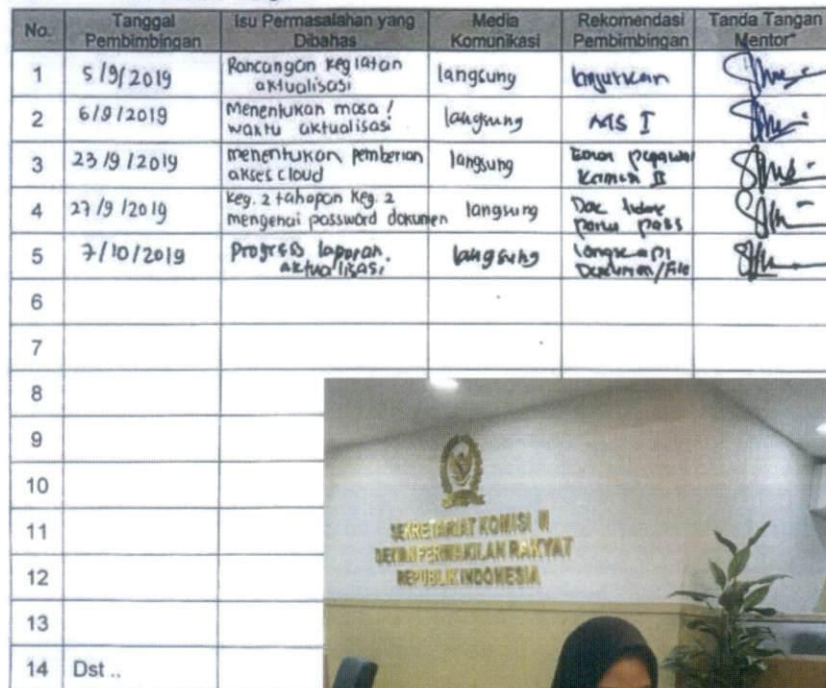 No. Tanggal Pembimbingan Isu Permasalahan yang Dibahas Media Komunikasi Rekomendasi Pembimbingan Tanda Tangan Mentor*
1 5/9/2019 Rancangan kegiatan aktualisasi langsung lanjutkan
2 6/9/2019 Menentukan masa / waktu aktualisasi langsung MS I
3 23/9/2019 menentukan pemberian akses cloud langsung
4 27/9/2019 keg. 2 tahapan keg. 2 mengenai password dokumen langsung Dok tidak perlu pass
5 7/10/2019 Progress laporan. aktualisasi langsung lengkapi Dokumen/File
6
7
8
9
10
11
12
13
14 Dst ..
SEKRETARIAT KOMISI VI
DEWAN PERWAKILAN RAKYAT
REPUBLIK INDONESIA